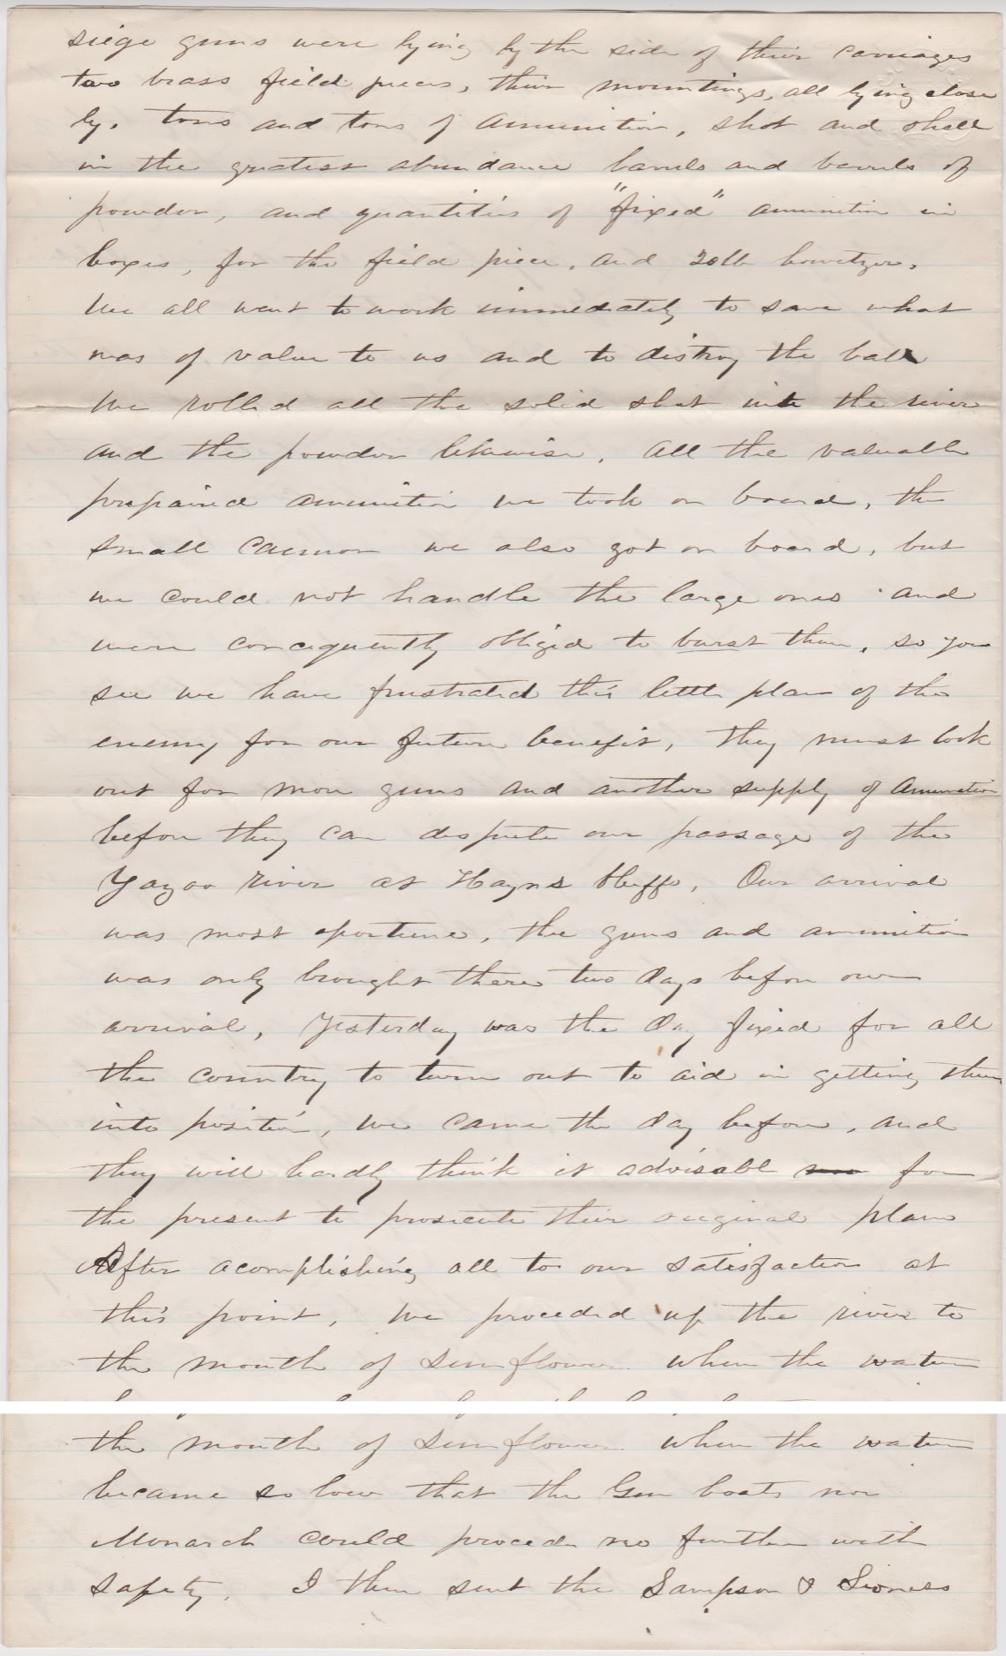 siege guns were lying by the side of their carriages
two brass field pieces, their mountings, all lying close
by. tons and tons of amunition, shot and shell
in the greatest abundance barrels and barrels of
powder, and quantities of "fixed" amunition in
boxes, for the field piece, and 20lb howitzer.
We all went to work immediately to save what
was of value to us and to distroy the balr
We rolled all the solid shot into the river
and the powder likewise. All the valuable
prepaired amunition we took on board, the
small cannon we also got on board, but
we could not handle the large ones and
were concequently obliged to burst them, so you
see we have frustrated this little plan of the
enemy for our future benefit, they must look
out for more guns and another supply of amunition
before they can dispute our passage of the
Yazoo river at Hayns bluffs, Our arrival
was most oportune, the guns and amunition
was only brought there two days before our
arrival, Yesterday was the day fixed for all
the country to turn out to aid in getting them
into position, we came the day before, and
they will hardly think it advisable for
the present to prosecute their original plan
After acomplishing all to our satisfaction at
this point, we proceded up the river to
the mouth of Sunflower when the water
the mouth of Sunflower when the water
became so low that the Gun boats nor
Monarch could procede no further with
safety. I then sent the Sampson & Lioness